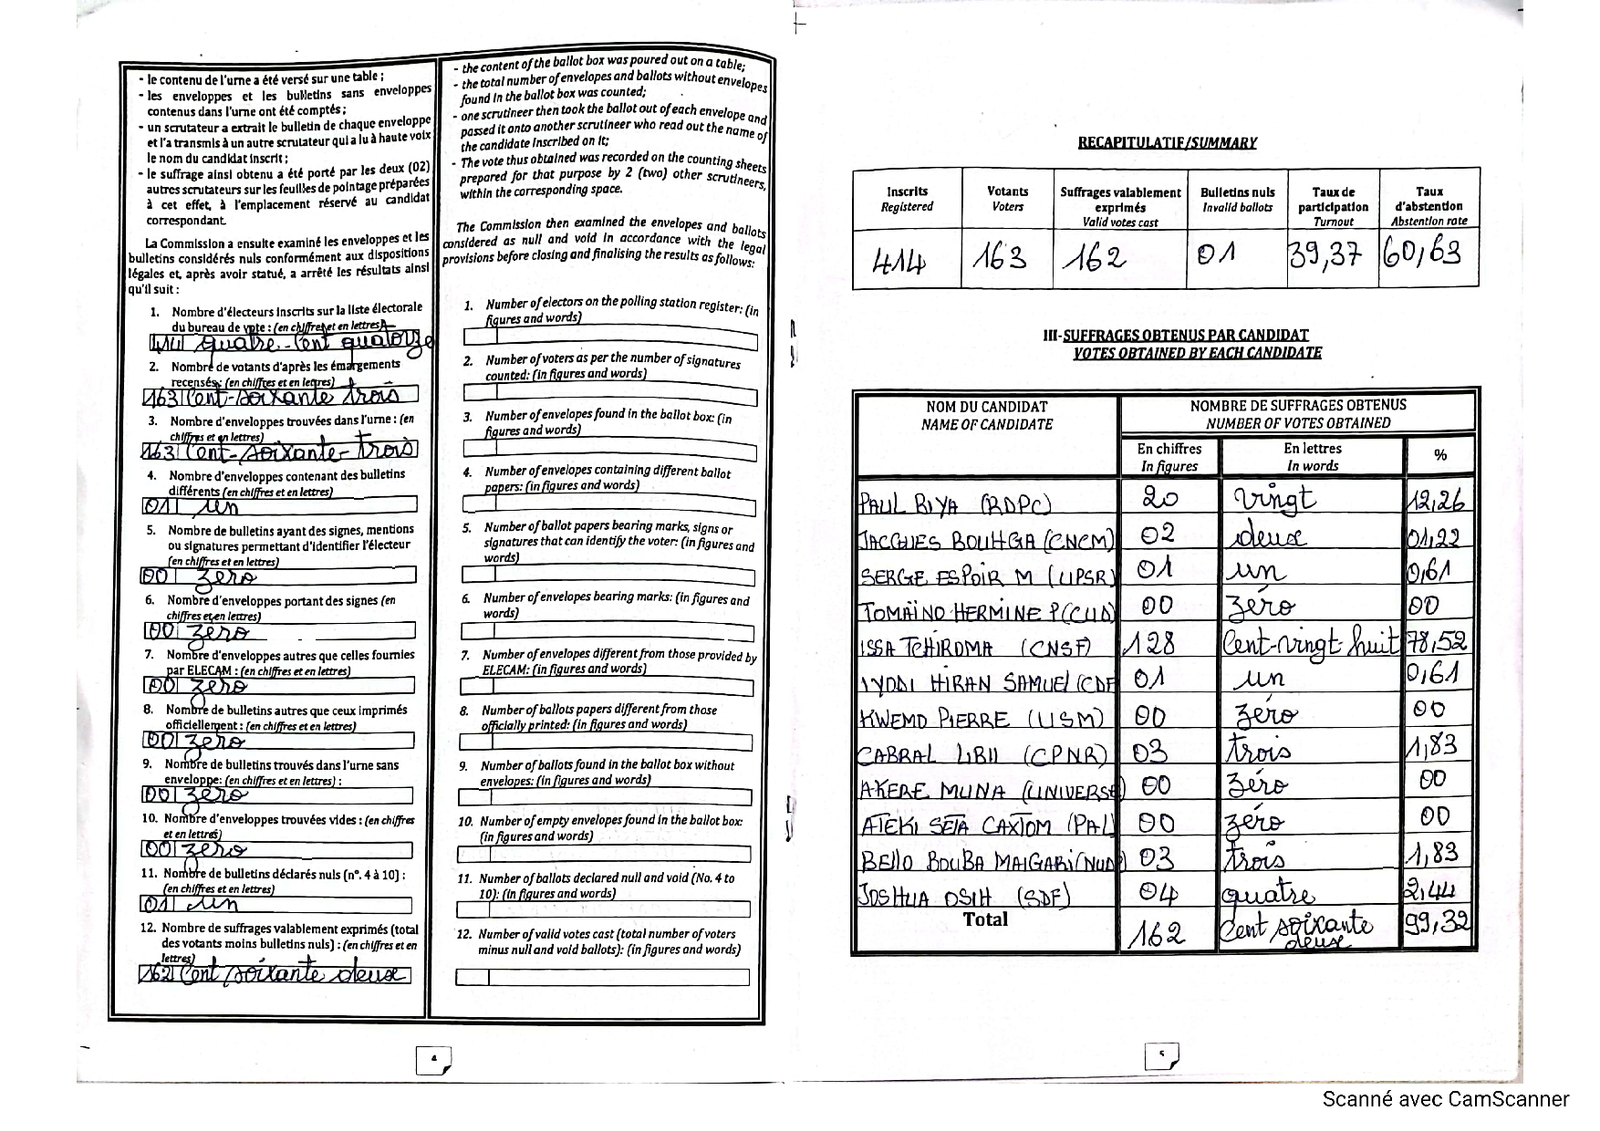 - le contenu de l'urne a été versé sur une table ;
- les enveloppes et les bulletins sans enveloppes
contenus dans l'urne ont été comptés ;
- un scrutateur a extrait le bulletin de chaque enveloppe
et l'a transmis à un autre scrutateur qui a lu à haute voix
le nom du candidat inscrit ;
- le suffrage ainsi obtenu a été porté par les deux (02)
autres scrutateurs sur les feuilles de pointage préparées
à cet effet, à l'emplacement réservé au candidat
correspondant.
La Commission a ensuite examiné les enveloppes et les
bulletins considérés nuls conformément aux dispositions
légales et, après avoir statué, a arrêté les résultats ainsi
qu'il suit :
1. Nombre d'électeurs inscrits sur la liste électorale
du bureau de vote : (en chiffres et en lettres)
414 quatre-cent quatorze
2. Nombre de votants d'après les émargements
recensés : (en chiffres et en lettres)
163 Cent-soixante trois
3. Nombre d'enveloppes trouvées dans l'urne : (en
chiffres et en lettres)
163 Cent-soixante-trois
4. Nombre d'enveloppes contenant des bulletins
différents (en chiffres et en lettres)
01 un
5. Nombre de bulletins ayant des signes, mentions
ou signatures permettant d'identifier l'électeur
(en chiffres et en lettres)
00 zéro
6. Nombre d'enveloppes portant des signes (en
chiffres et en lettres)
00 zéro
7. Nombre d'enveloppes autres que celles fournies
par ELECAM : (en chiffres et en lettres)
00 zéro
8. Nombre de bulletins autres que ceux imprimés
officiellement : (en chiffres et en lettres)
00 zéro
9. Nombre de bulletins trouvés dans l'urne sans
enveloppe: (en chiffres et en lettres) :
00 zéro
10. Nombre d'enveloppes trouvées vides : (en chiffres
et en lettres)
00 zéro
11. Nombre de bulletins déclarés nuls (n°. 4 à 10) :
(en chiffres et en lettres)
01 un
12. Nombre de suffrages valablement exprimés (total
des votants moins bulletins nuls) : (en chiffres et en
lettres)
162 Cent soixante deux
- the content of the ballot box was poured out on a table;
- the total number of envelopes and ballots without envelopes
found in the ballot box was counted;
- one scrutineer then took the ballot out of each envelope and
passed it onto another scrutineer who read out the name of
the candidate inscribed on it;
- The vote thus obtained was recorded on the counting sheets
prepared for that purpose by 2 (two) other scrutineers,
within the corresponding space.
The Commission then examined the envelopes and ballots
considered as null and void in accordance with the legal
provisions before closing and finalising the results as follows:
1. Number of electors on the polling station register: (in
figures and words)
2. Number of voters as per the number of signatures
counted: (in figures and words)
3. Number of envelopes found in the ballot box: (in
figures and words)
4. Number of envelopes containing different ballot
papers: (in figures and words)
5. Number of ballot papers bearing marks, signs or
signatures that can identify the voter: (in figures and
words)
6. Number of envelopes bearing marks: (in figures and
words)
7. Number of envelopes different from those provided by
ELECAM: (in figures and words)
8. Number of ballots papers different from those
officially printed: (in figures and words)
9. Number of ballots found in the ballot box without
envelopes: (in figures and words)
10. Number of empty envelopes found in the ballot box:
(in figures and words)
11. Number of ballots declared null and void (No. 4 to
10): (in figures and words)
12. Number of valid votes cast (total number of voters
minus null and void ballots): (in figures and words)
4
RECAPITULATIF/SUMMARY
Inscrits Votants Suffrages valablement Bulletins nuls Taux de Taux
Registered Voters exprimés Invalid ballots participation d'abstention
Valid votes cast Turnout Abstention rate
414 163 162 01 39,37 60,63
III-SUFFRAGES OBTENUS PAR CANDIDAT
VOTES OBTAINED BY EACH CANDIDATE
NOM DU CANDIDAT NOMBRE DE SUFFRAGES OBTENUS
NAME OF CANDIDATE NUMBER OF VOTES OBTAINED
En chiffres En lettres %
In figures In words
PAUL BIYA (RDPC) 20 vingt 12,26
JACQUES BOUHGA (CNCM) 02 deux 01,22
SERGE ESPOIR M (UPSR) 01 un 0,61
TOMAÏNO HERMINE P(CUD) 00 zéro 00
ISSA TCHIROMA (CNSF) 128 Cent-vingt huit 78,52
IYODI HIRAN SAMUEL (CDF 01 un 0,61
KWEMO PIERRE (USM) 00 zéro 00
CABRAL LIBII (CPNR) 03 trois 1,83
AKERE MUNA (UNIVERSE) 00 zéro 00
ATEKI SETA CAXTOM (PAL) 00 zéro 00
BELLO BOUBA MAIGARI (NUDP) 03 trois 1,83
JOSHUA OSIH (SDF) 04 quatre 2,44
Total 162 Cent soixante deux 99,32
5
Scanné avec CamScanner